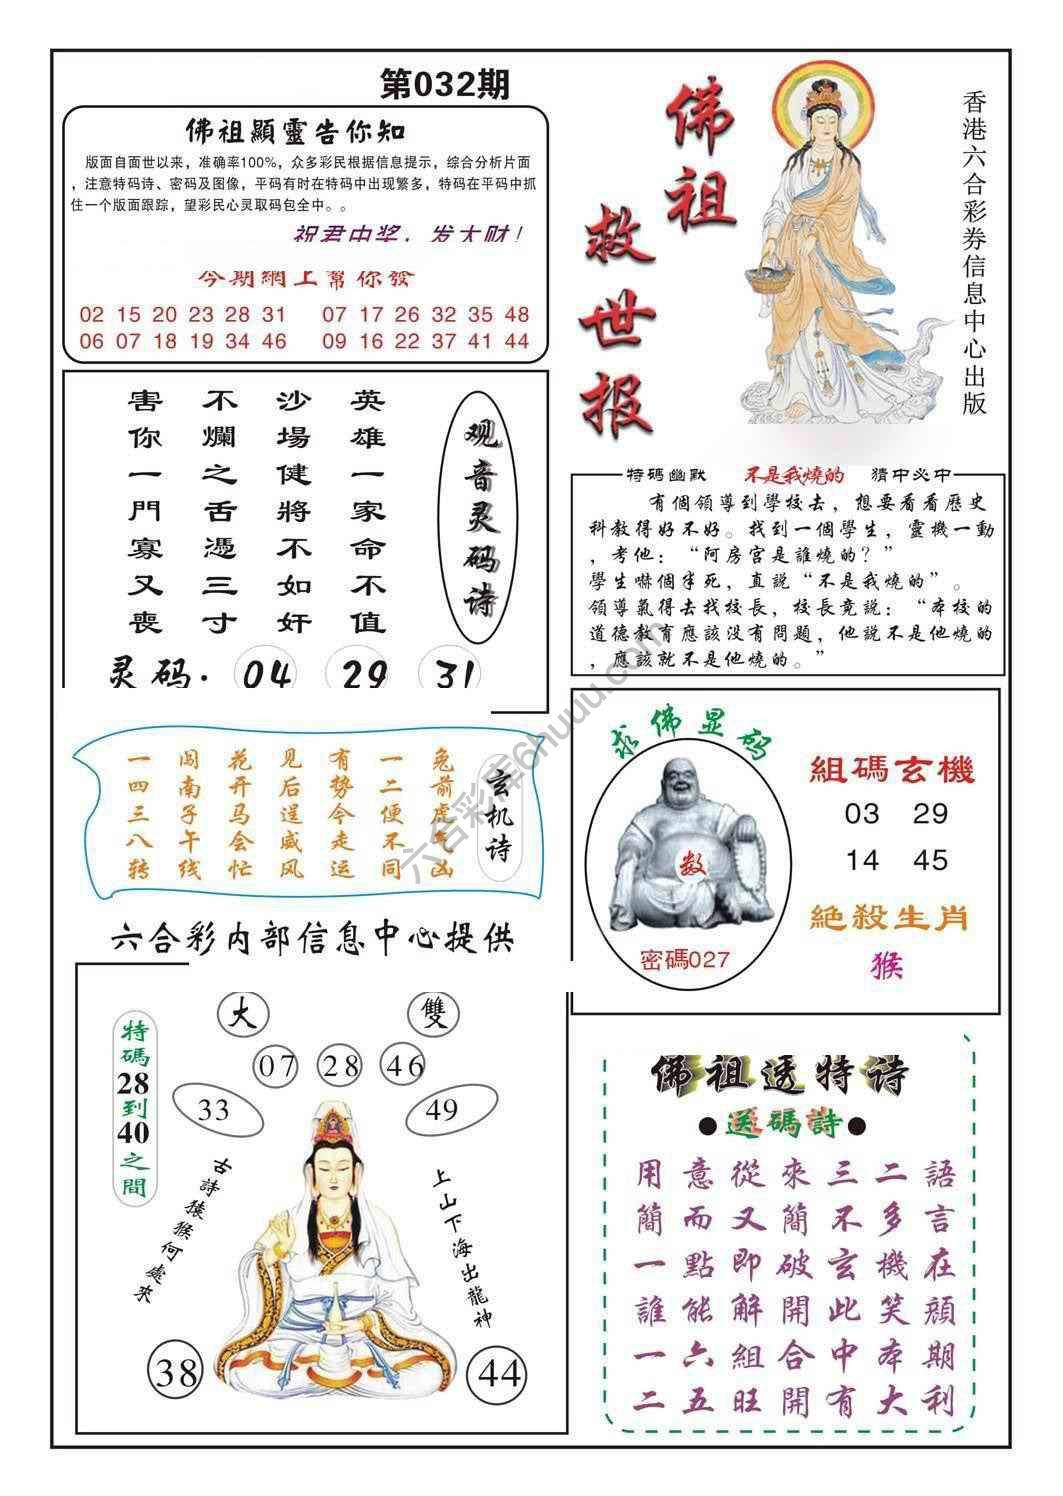 第032期
佛祖顯靈告你知
版面自面世以来，准确率100%，众多彩民根据信息提示，综合分析片面
，注意特码诗、密码及图像，平码有时在特码中出现繁多，特码在平码中抓
住一个版面跟踪，望彩民心灵取码包全中。。
祝君中奖，发大财！
今期網上幫你發
02 15 20 23 28 31 07 17 26 32 35 48
06 07 18 19 34 46 09 16 22 37 41 44
佛祖
救世报
香港六合彩券信息中心出版
观音灵码诗
英雄一家命不值
沙場健將不如奸
不爛之舌憑三寸
害你一門寡又喪
灵码. 04 29 31
特碼幽默 不是我燒的 猜中必中
有個領導到學校去，想要看看歷史
科教得好不好。找到一個學生，靈機一動
，考他：“阿房宫是誰燒的？”
學生嚇個半死，直説“不是我燒的”。
領導氣得去找校長，校長竟説：“本校的
道德教育應該没有問題，他説不是他燒的
，應該就不是他燒的。”
玄机诗
兔前虎气凶
一二便不同
有势今走运
见后逞威风
花开马会忙
闯南子午线
一四三八转
求佛显码
数
密碼027
組碼玄機
03 29
14 45
絶殺生肖
猴
六合彩内部信息中心提供
特碼28到40之間
大 雙
07 28 46
33 49
古詩猿猴何處來
上山下海出龍神
38 44
佛祖透特诗
●送碼詩●
用意從來三二語
簡而又簡不多言
一點即破玄機在
誰能解開此笑顔
一六組合中本期
二五旺開有大利
六合彩库6huuu.com